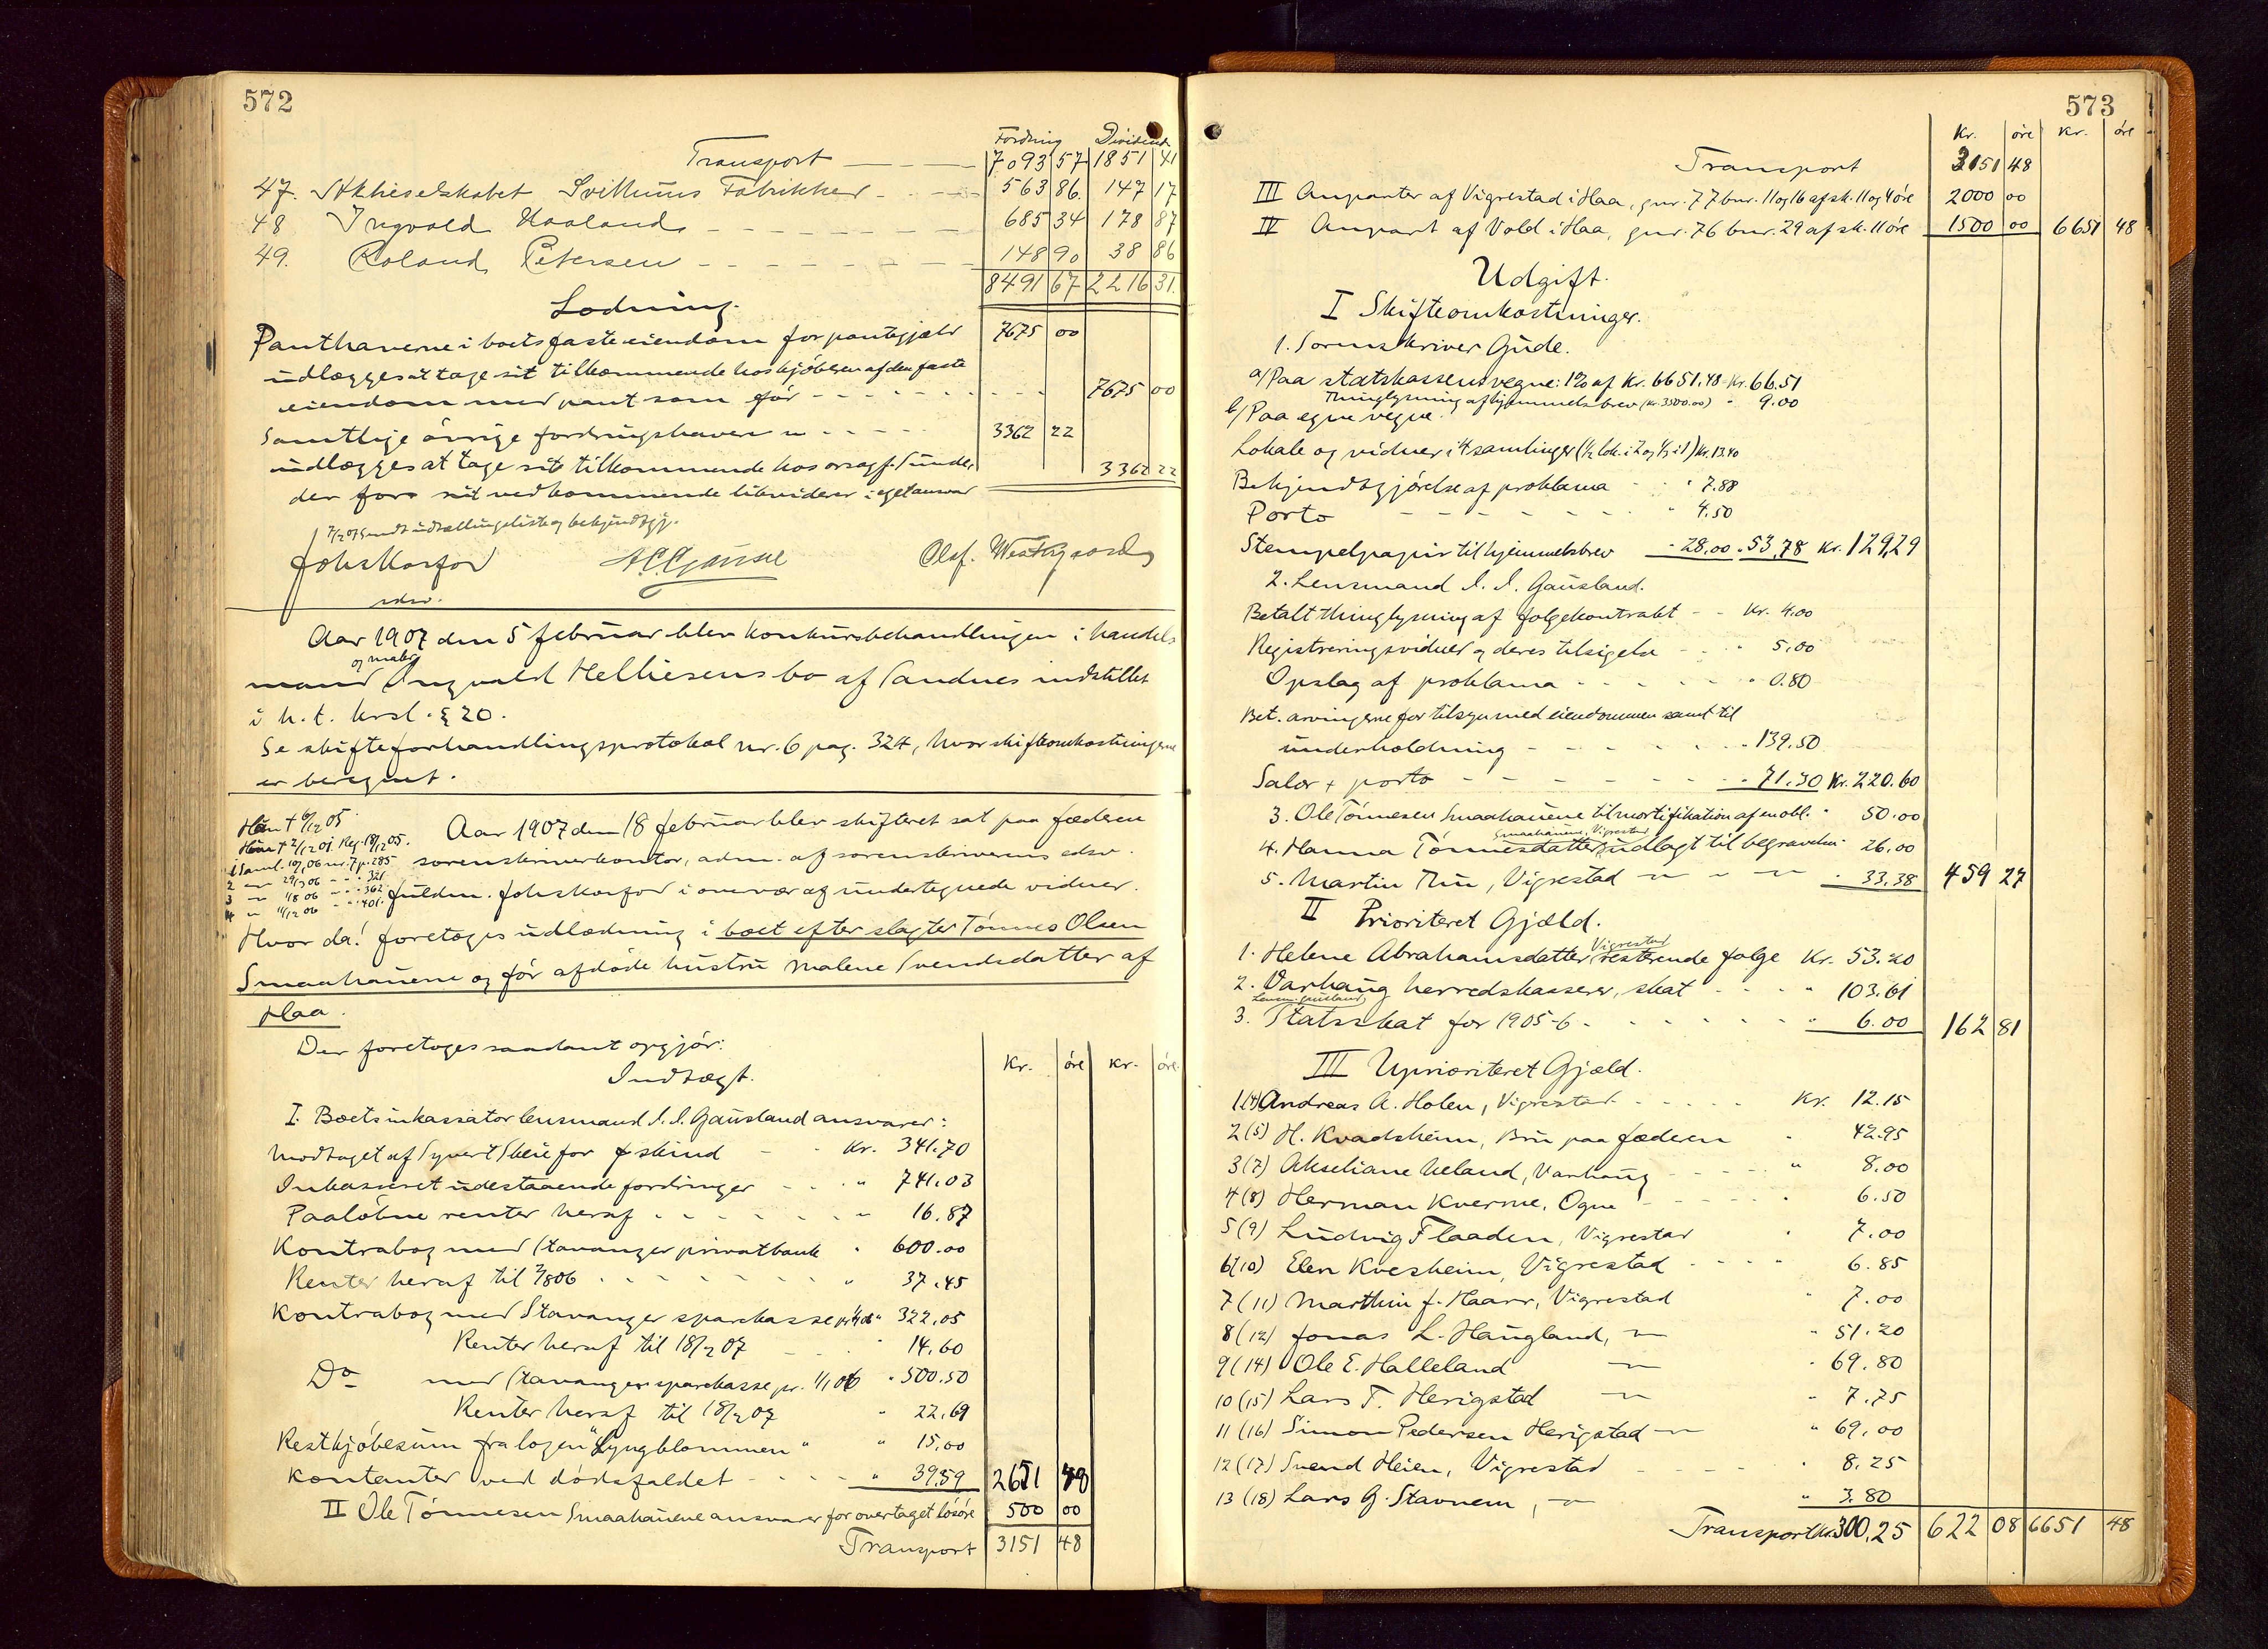 572
Fordring Dividende
Transport 7093 57 1851 41
47. Aktieselskabet Svithuns Fabrikker 563 86 147 17
48 Ingvald Haaland 685 34 178 87
49. Roland Petersen 148 90 38 86
8491 67 2216 31
Lodning.
Panthaverne i boets faste eiendom for pantegjæld 7675 00
udlægges at tage sit tilkommende hos kjöberen af den faste
eiendom med pant som för 7675 00
Samtlige övrige fordringshavere 3362 22
udlægges at tage sit tilkommende hos orsagf. Sunde, 3362 22
der for sit vedkommende likviderer i eget ansvar
7/2 07 sendt udtællingsliste og bekjendtgj.
Joh. Skorfor Olaf. Westergaard
edsv.
Aar 1907 den 5 februar blev konkursbehandlingen i handels
og maler
mand Ingvald Helliesens bo af Sandnes indstillet
i h. t. krsl. § 20.
Se skifteforhandlingsprotokol nr. 6 pag. 324, hvor skifteomkostningerne
er beregnet.
Aar 1907 den 18 februar blev skifteret sat paa Jæderen
sorenskriverkontor, adm. af sorenskriverens edsv.
fuldm. Joh. Skorfor i overvær af undertegnede vidner.
Hvor da: foretoges udlodning i boet efter slagter Tönnes Olsen
Smaahauene og för afdöde hustru Malene Svendsdatter af
Haa.
Der foretoges saadant opgjör:
Indtægt. Kr. öre Kr. öre
I. Boets inkassator lensmand S. S. Gausland ansvarer:
Modtaget af Syvert Skeie for skind Kr. 341.70
Inkasseret udestaaende fordringer " 741.03
Paalöbne renter heraf " 16.87
Kontrabog med Stavanger privatbank " 600.00
Renter heraf til 7/8 06 " 37.45
Kontrabog med Stavanger sparekasse " 322.05
Renter heraf til 18/2 07 " 14.60
Do med Stavanger sparekasse pr. 1/1 06 " 500.50
Renter heraf til 18/2 07 " 22.69
Restkjöbesum fra logen "Lyngblommen" " 15.00
Kontanter ved dödsfaldet " 39.59 2651 48
II Ole Tönnesen Smaahauene ansvarer for overtaget lösöre 500 00
Transport 3151 48
573
Kr. öre Kr. öre
Transport 3151 48
III Anparter af Vigrestad i Haa, gnr. 77 bnr. 11 og 16 af sk. 11 og 4 öre 2000 00
IV Anpart af Vold i Haa, gnr. 76 bnr. 29 af sk. 11 öre 1500 00 6651 48
Udgift.
I Skifteomkostninger.
1. Sorenskriver Gude.
a/ Paa statskassens vegne: 1% af Kr. 6651.48 Kr. 66.51
Thinglysning af hjemmelsbrev (kr. 3500.00) " 9.00
b/ Paa egne vegne
Lokale og vidner i 4 samlinger (1/2 lok. i 2 og 1/3 i 1) Kr. 13.40
Bekjendtgjörelse af proklama " 7.88
Porto " 4.50
Stempelpapir til hjemmelsbrev " 28.00 " 53.78 Kr. 129.29
2. Lensmand S. S. Gausland.
Betalt thinglysning af folgekontrakt Kr. 4.00
Registreringsvidner og deres tilsigelse " 5.00
Opslag af proklama " 0.80
Bet. arvingerne for tilsyn med eiendommen samt til
underholdning " 139.50
Salær + porto " 71.30 Kr. 220.60
3. Ole Tönnesen Smaahauene til mortifikation af en obl. " 50.00
Smaahauene, Vigrestad
4. Hanna Tönnesdatter udlagt til begravelse 26.00
5. Martin Thu, Vigrestad " 33.38 459 27
II Prioriteret Gjæld.
Vigrestad
1. Helene Abrahamsdatter resterende folge Kr. 53.20
2. Varhaug herredskasserer, skat " 103.61
Lensm. Gausland
3. Statsskat for 1905-6 " 6.00 162 81
III Uprioriteret Gjæld.
1(4) Andreas A. Holen, Vigrestad Kr. 12.15
2(5) H. Kvadsheim, Bru paa Jæderen " 42.95
3(7) Akseliane Ueland, Varhaug " 8.00
4(8) Herman Kverme, Ogne " 6.50
5(9) Ludvig Flaaden, Vigrestad " 7.00
6(10) Elen Kvesheim, Vigrestad " 6.85
7(11) Marthin J. Haarr, Vigrestad " 7.00
8(12) Jonas L. Haugland, " 51.20
9(14) Ole E. Halleland " 69.80
10(15) Lars T. Herigstad " 7.75
11(16) Simon Pedersen Herigstad " 69.00
12(17) Svend Heien, Vigrestad " 8.25
13(18) Lars G. Stavnem, " 3.80
Transport Kr. 300.25 622 08 6651 48